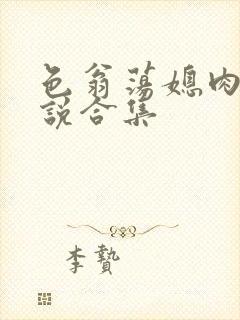 色翁荡媳肉
说合集
李贽